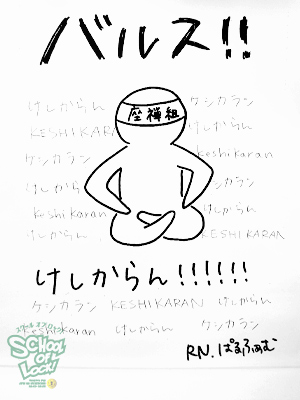 バルス!!
けしからん ケシカラン
KESHIKARAN けしからん
ケシカラン keshikaran
けしからん ケシカラン
keshikaran けしからん
けしからん KESHIKARAN
座禅組
けしからん!!!!!!
ケシカラン KESHIKARAN けしからん
keshikaran けしからん ケシカラン
SCHOOL OF LOCK!
RN.ぱるふぁむ